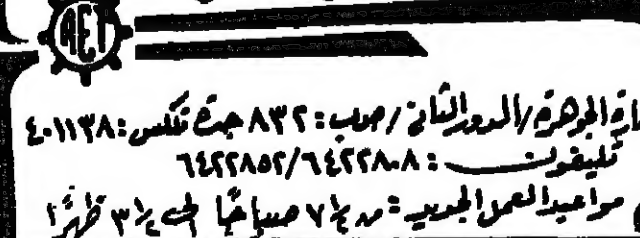 AET
عمارة الجوهرة/الدور الثاني/صب: ٨٣٢ جدة تلكس: ٤٠١١٣٨
تليفون: ٦٤٢٢٨٠٨/٦٤٢٢٨٥٢
مواعيد العمل الجديد: من ٧½ صباحًا إلى ٣½ ظهرًا